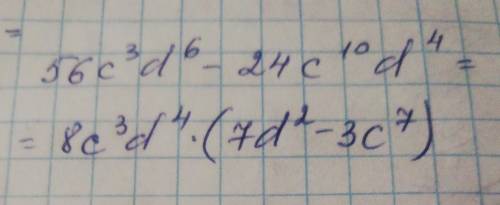 =
56c³d⁶ - 24c¹⁰d⁴ =
= 8c³d⁴·(7d² - 3c⁷)